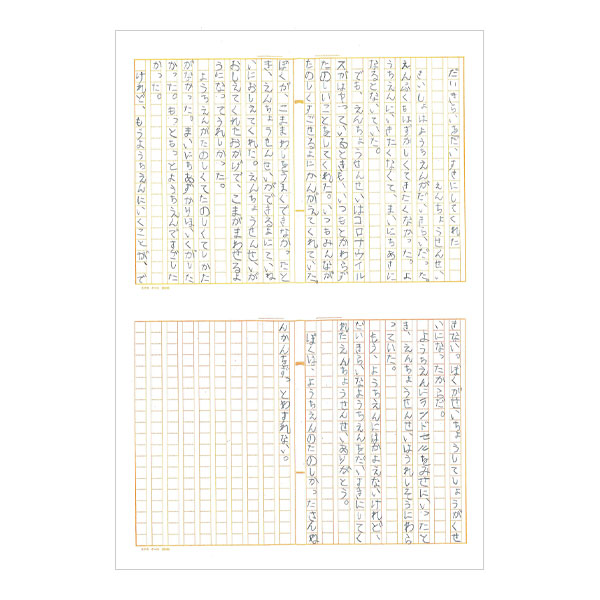 だいきらいをだいすきにしてくれた
えんちょうせんせい
さいしょはようちえんがだいきらいだった。
えんぷくをはずかしくてきたくなかった。よ
うちえんにいきたくなくて、まいにちあさに
なるとないていた。
でも、えんちょうせんせいはコロナウイル
スがはやっているときも、いつもとかわらず
たのしいことをしてくれた。いつもみんなが
たのしくすごせるようにかんがえてくれていた。
ぼくが、こままわしをうまくできなかったと
き、えんちょうせんせいができるようにていね
いにおしえてくれた。えんちょうせんせいが
おしえてくれたおかげで、こまがまわせるよ
うになってうれしかった。
ようちえんがたのしくてたのしくてしかた
がなかった。まいにちあずかりほいくがした
かった。もっともっとようちえんですごした
かった。
けれど、もうようちえんにいくことが、で
きない。ぼくがせいちょうしてしょうがくせ
いになったからだ。
ようちえんにランドセルをみせに、いったと
き、えんちょうせんせいはうれしそうにわら
っていた。
もう、ようちえんにはかよえないけれど、
だいきらいなようちえんをだいすきにしてく
れたえんちょうせんせいありがとう。
ぼくは、ようちえんのたのしかったさんね
んかんをずっとわすれない。